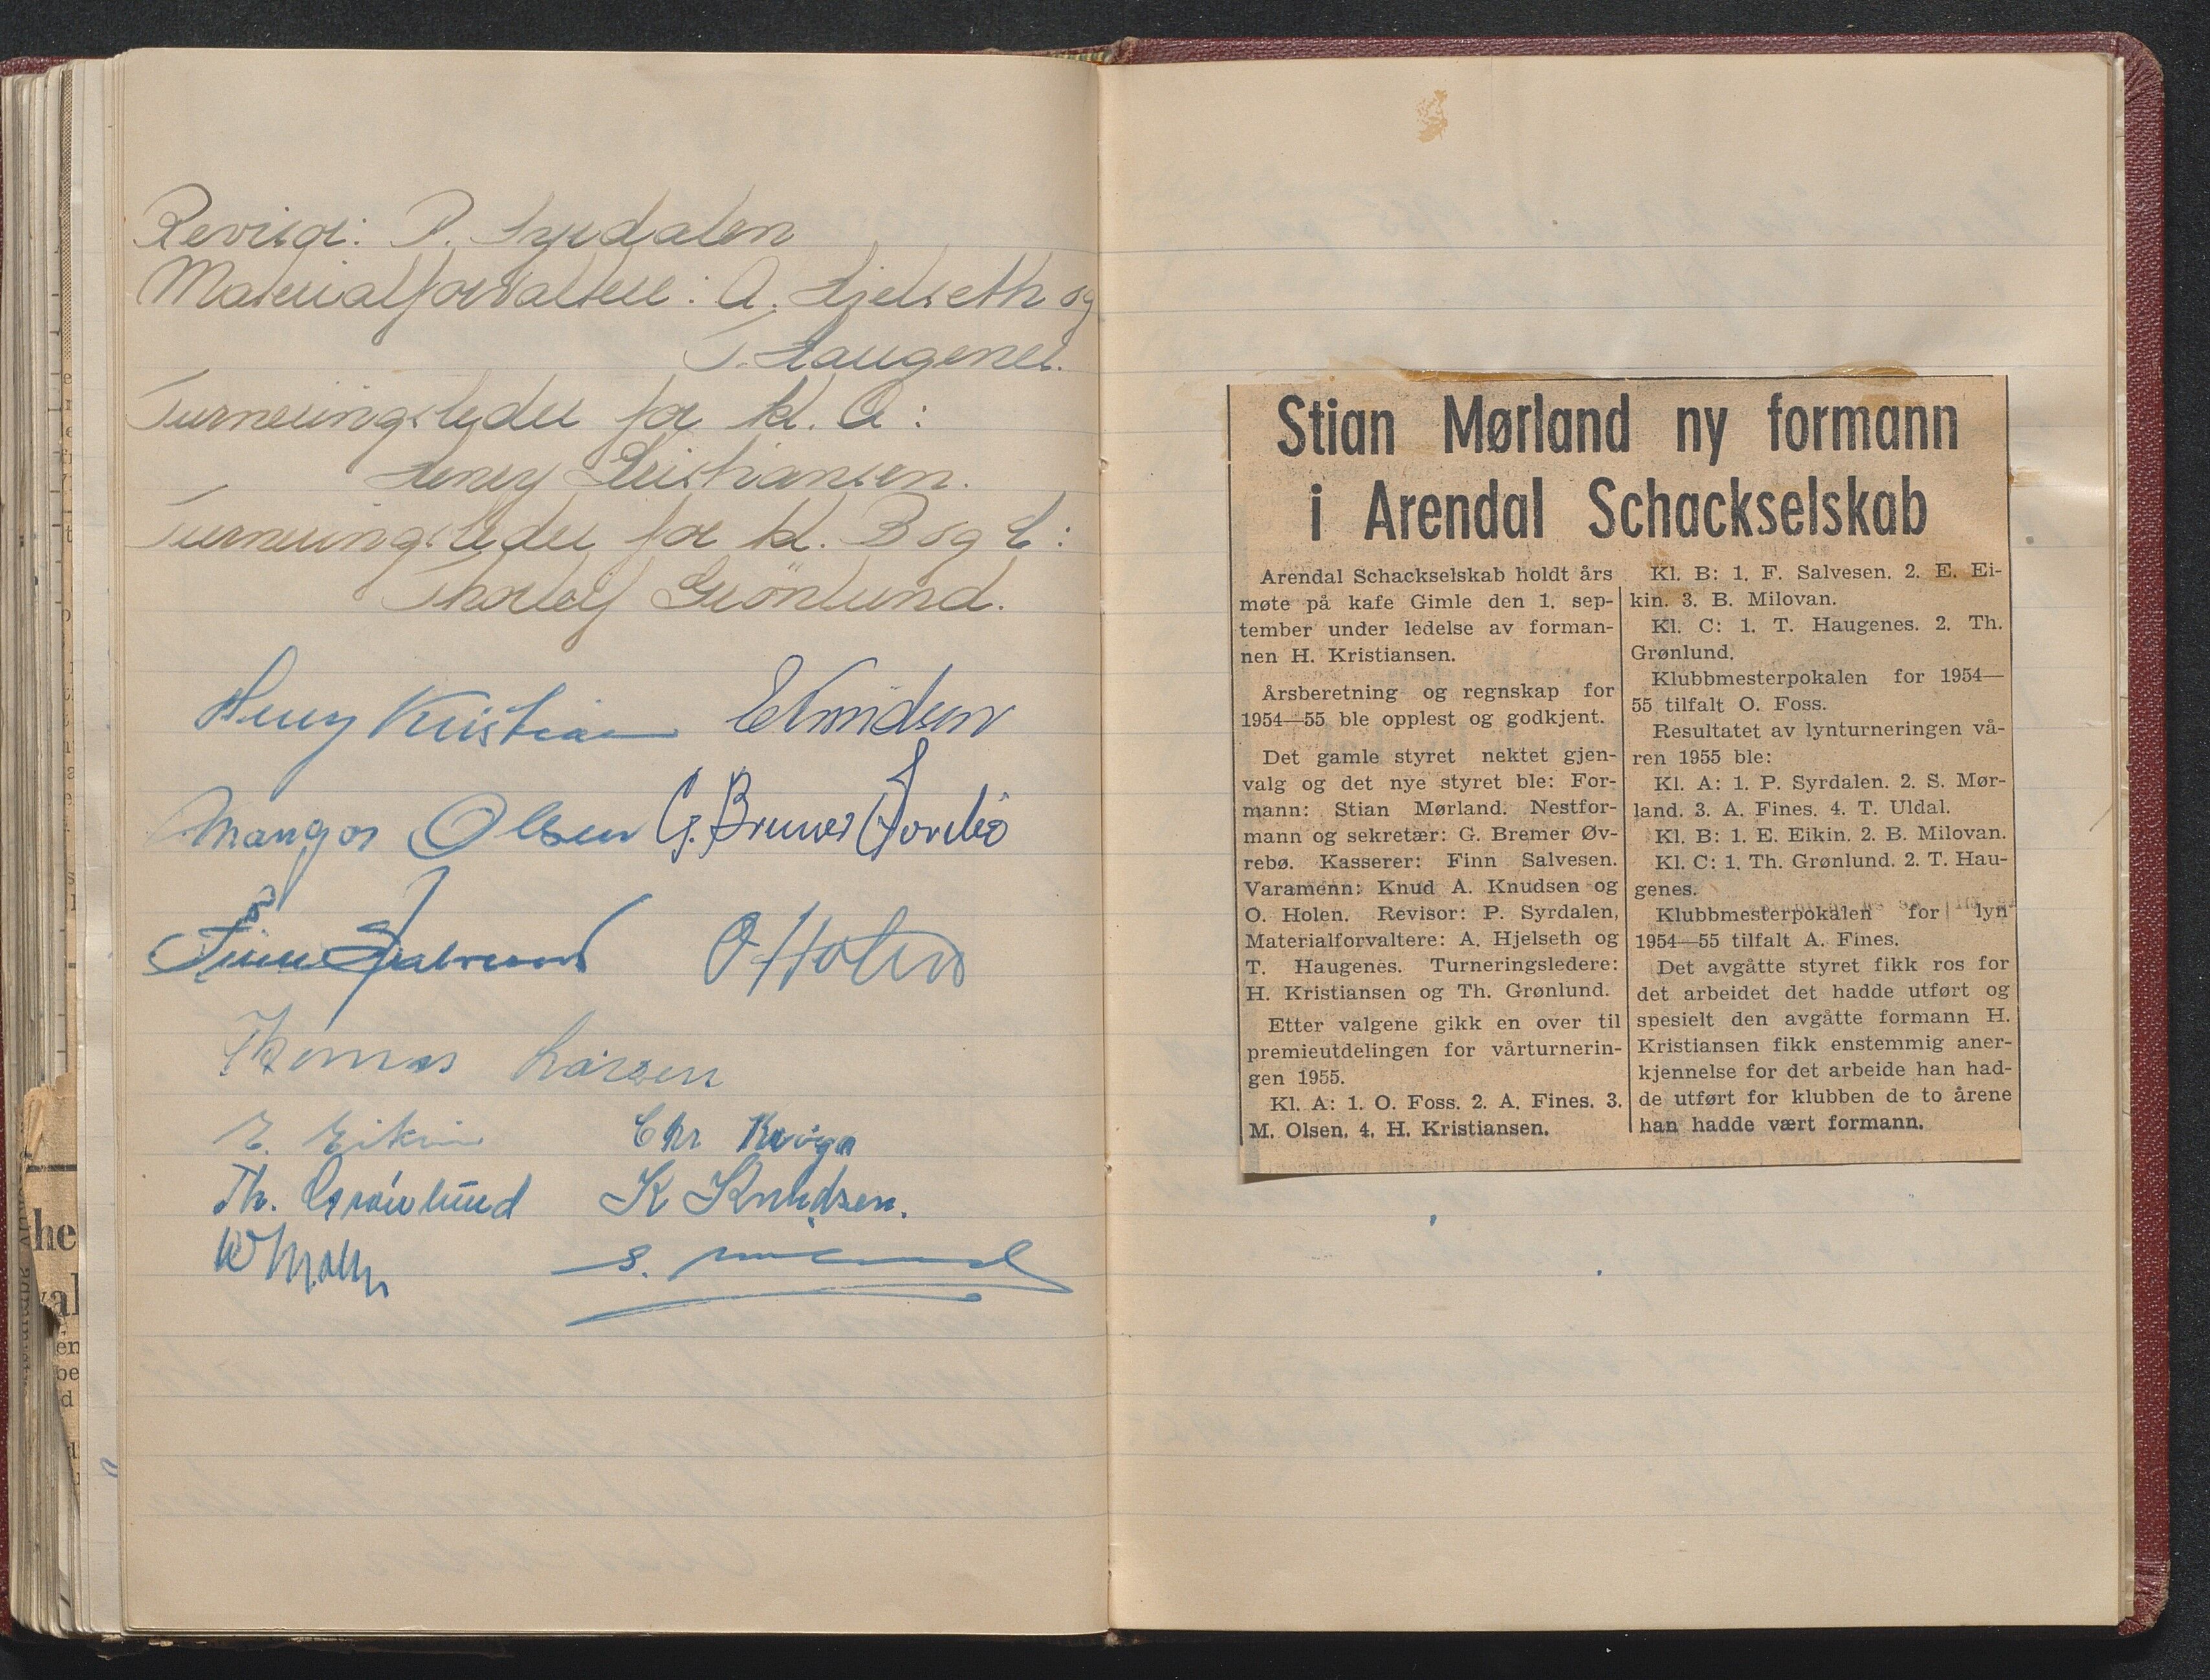 Revisor: P. Syrdalen
Materialforvaltere: A. Hjelseth og
T. Haugenes.
Turneringsleder for kl. A:
Henry Kristiansen.
Turneringsleder for kl. B og C:
Thorleif Grönlund.
Henry Kristian
Magnor Olsen G. Bremer Øvrebö
Finn Salvesen O Holen
Thomas Larsen
E. Eikin Chr
Th. Grönlund K Knudsen.
S.
Stian Mørland ny formann
i Arendal Schackselskab
Arendal Schackselskab holdt års
møte på kafe Gimle den 1. sep-
tember under ledelse av forman-
nen H. Kristiansen.
Årsberetning og regnskap for
1954—55 ble opplest og godkjent.
Det gamle styret nektet gjen-
valg og det nye styret ble: For-
mann: Stian Mørland. Nestfor-
mann og sekretær: G. Bremer Øv-
rebø. Kasserer: Finn Salvesen.
Varamenn: Knud A. Knudsen og
O. Holen. Revisor: P. Syrdalen,
Materialforvaltere: A. Hjelseth og
T. Haugenes. Turneringsledere:
H. Kristiansen og Th. Grønlund.
Etter valgene gikk en over til
premieutdelingen for vårturnerin-
gen 1955.
Kl. A: 1. O. Foss. 2. A. Fines. 3.
M. Olsen. 4. H. Kristiansen.
Kl. B: 1. F. Salvesen. 2. E. Ei-
kin. 3. B. Milovan.
Kl. C: 1. T. Haugenes. 2. Th.
Grønlund.
Klubbmesterpokalen for 1954—
55 tilfalt O. Foss.
Resultatet av lynturneringen vå-
ren 1955 ble:
Kl. A: 1. P. Syrdalen. 2. S. Mør-
land. 3. A. Fines. 4. T. Uldal.
Kl. B: 1. E. Eikin. 2. B. Milovan.
Kl. C: 1. Th. Grønlund. 2. T. Hau-
genes.
Klubbmesterpokalen for lyn
1954—55 tilfalt A. Fines.
Det avgåtte styret fikk ros for
det arbeidet det hadde utført og
spesielt den avgåtte formann H.
Kristiansen fikk enstemmig aner-
kjennelse for det arbeide han had-
de utført for klubben de to årene
han hadde vært formann.